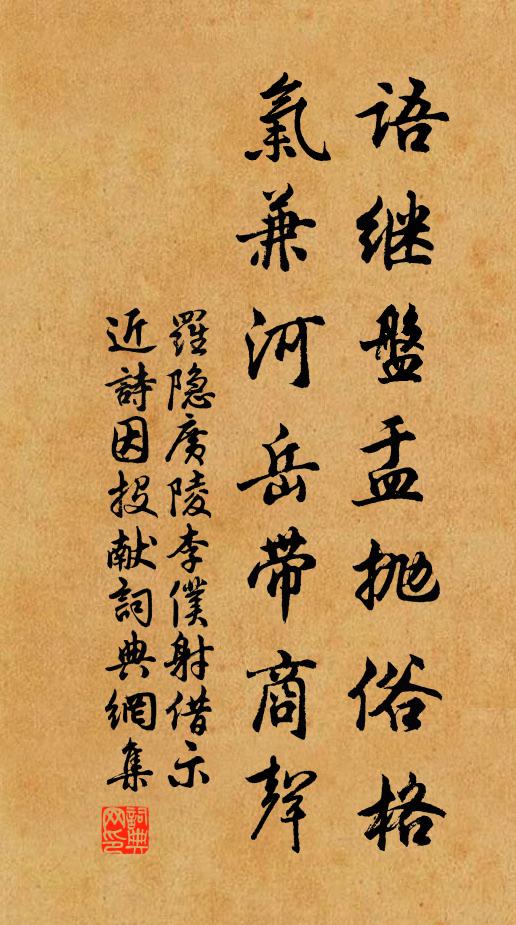 语继盤盂抛俗格
氣兼河岳带商聲
羅隐廣陵李僕射借示
近詩因投献詞典網集
詞典网印